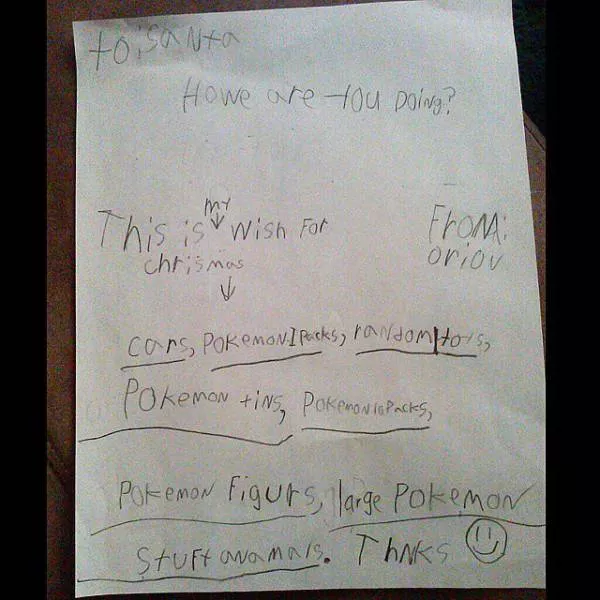 to: santa
Howe are you Doing?
my
This is wish For
chrismas
From:
oriou
cars, Pokemon 1 Packs, random toys,
Pokemon tins, Pokemon 10 Packs,
Pokemon Figurs, large Pokemon
Stuft anamals. Thnks